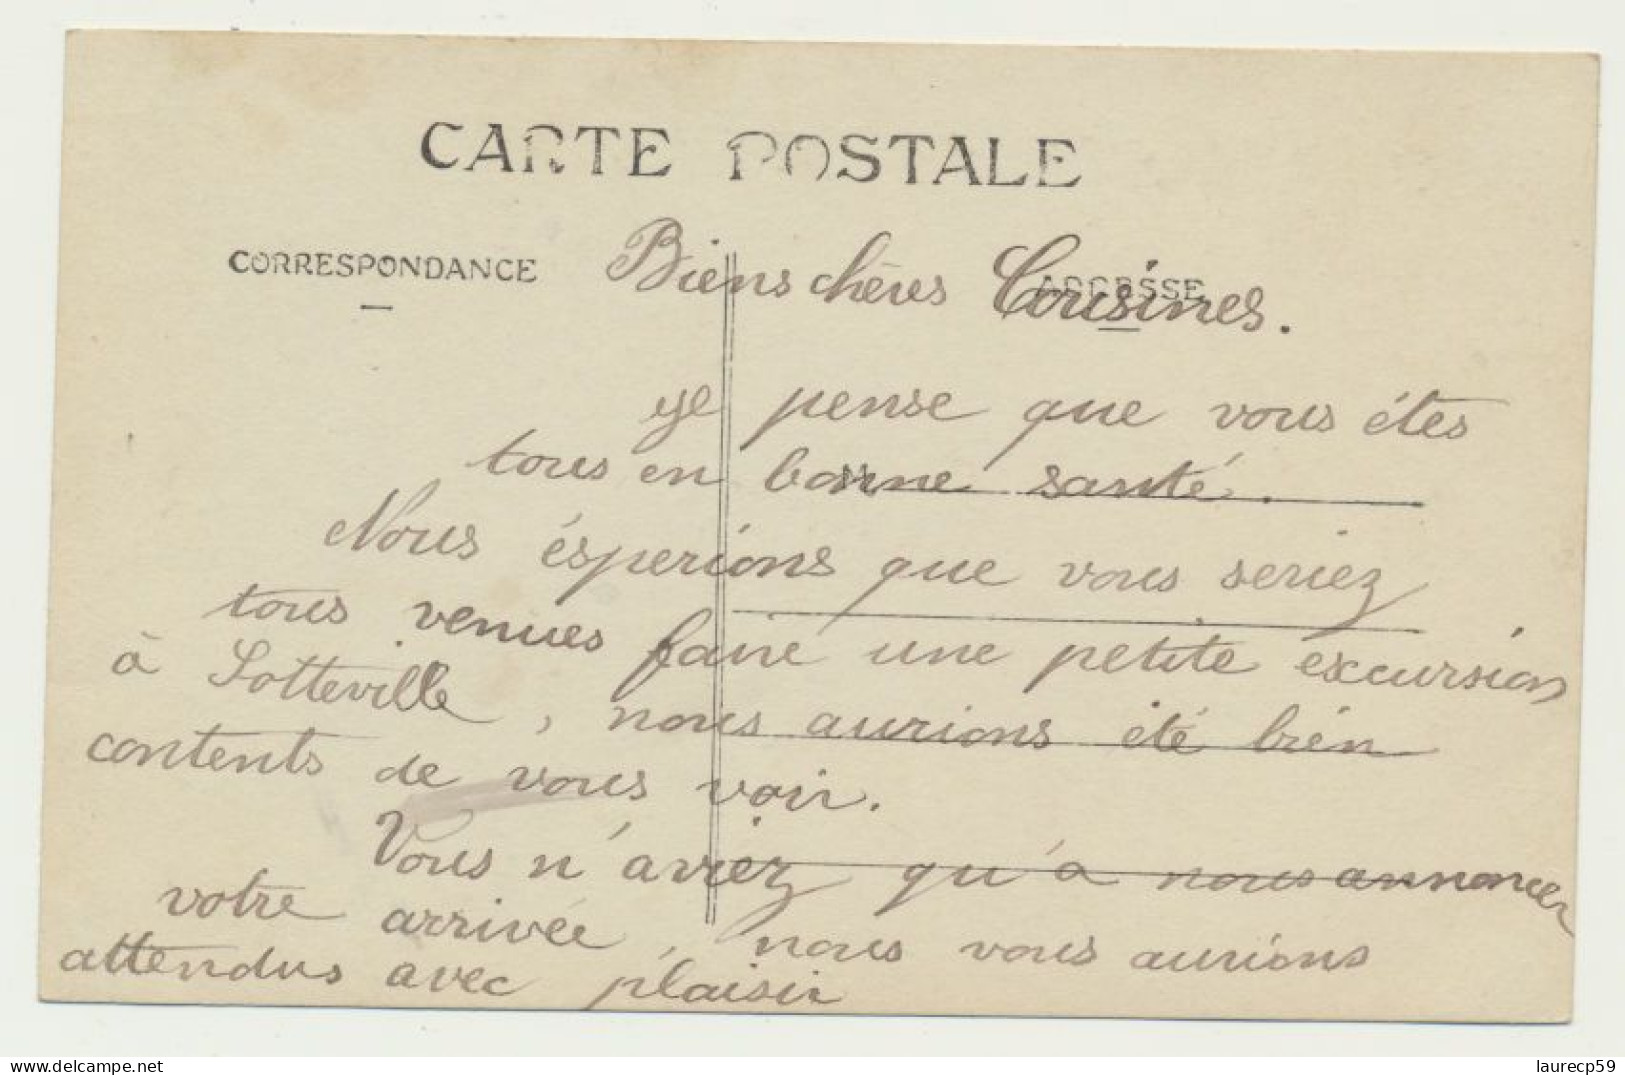 CARTE POSTALE
CORRESPONDANCE
ADRESSE
Biens chères Cousines.
je pense que vous étes
tous en bonne santé.
Nous ésperions que vous seriez
tous venues faire une petite excursion
à Sotteville, nous aurions été bien
contents de vous voir.
Vous n'aviez qu'à nous annoncer
votre arrivée, nous vous aurions
attendus avec plaisir
laurecp59